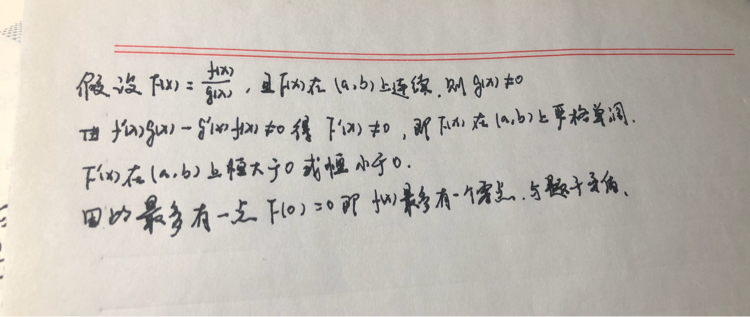 假设 F(x) = f(x)/g(x), 且F(x)在(a,b)上连续, 则 g(x) ≠ 0
由 f'(x)g(x) - g'(x)f(x) ≠ 0 得 F'(x) ≠ 0, 即 F(x) 在(a,b)上严格单调.
F'(x)在(a,b)上恒大于0 或恒小于0.
因此最多有一点 F(0)=0 即 f(x)最多有一个零点, 与题干矛盾.